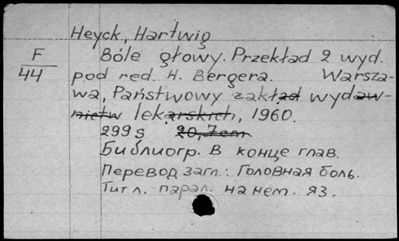 Heyck, Hartwig
F
44
Bóle głowy. Przekład 2 wyd.
pod red. H. Bergera. Warsza-
wa, Państwowy zakład wydaw-
nictw lekarskich, 1960.
299 s 20,7cm
Библиогр. в конце глав.
Перевод загл.: Головная боль.
Титл. парал. на нем. яз.